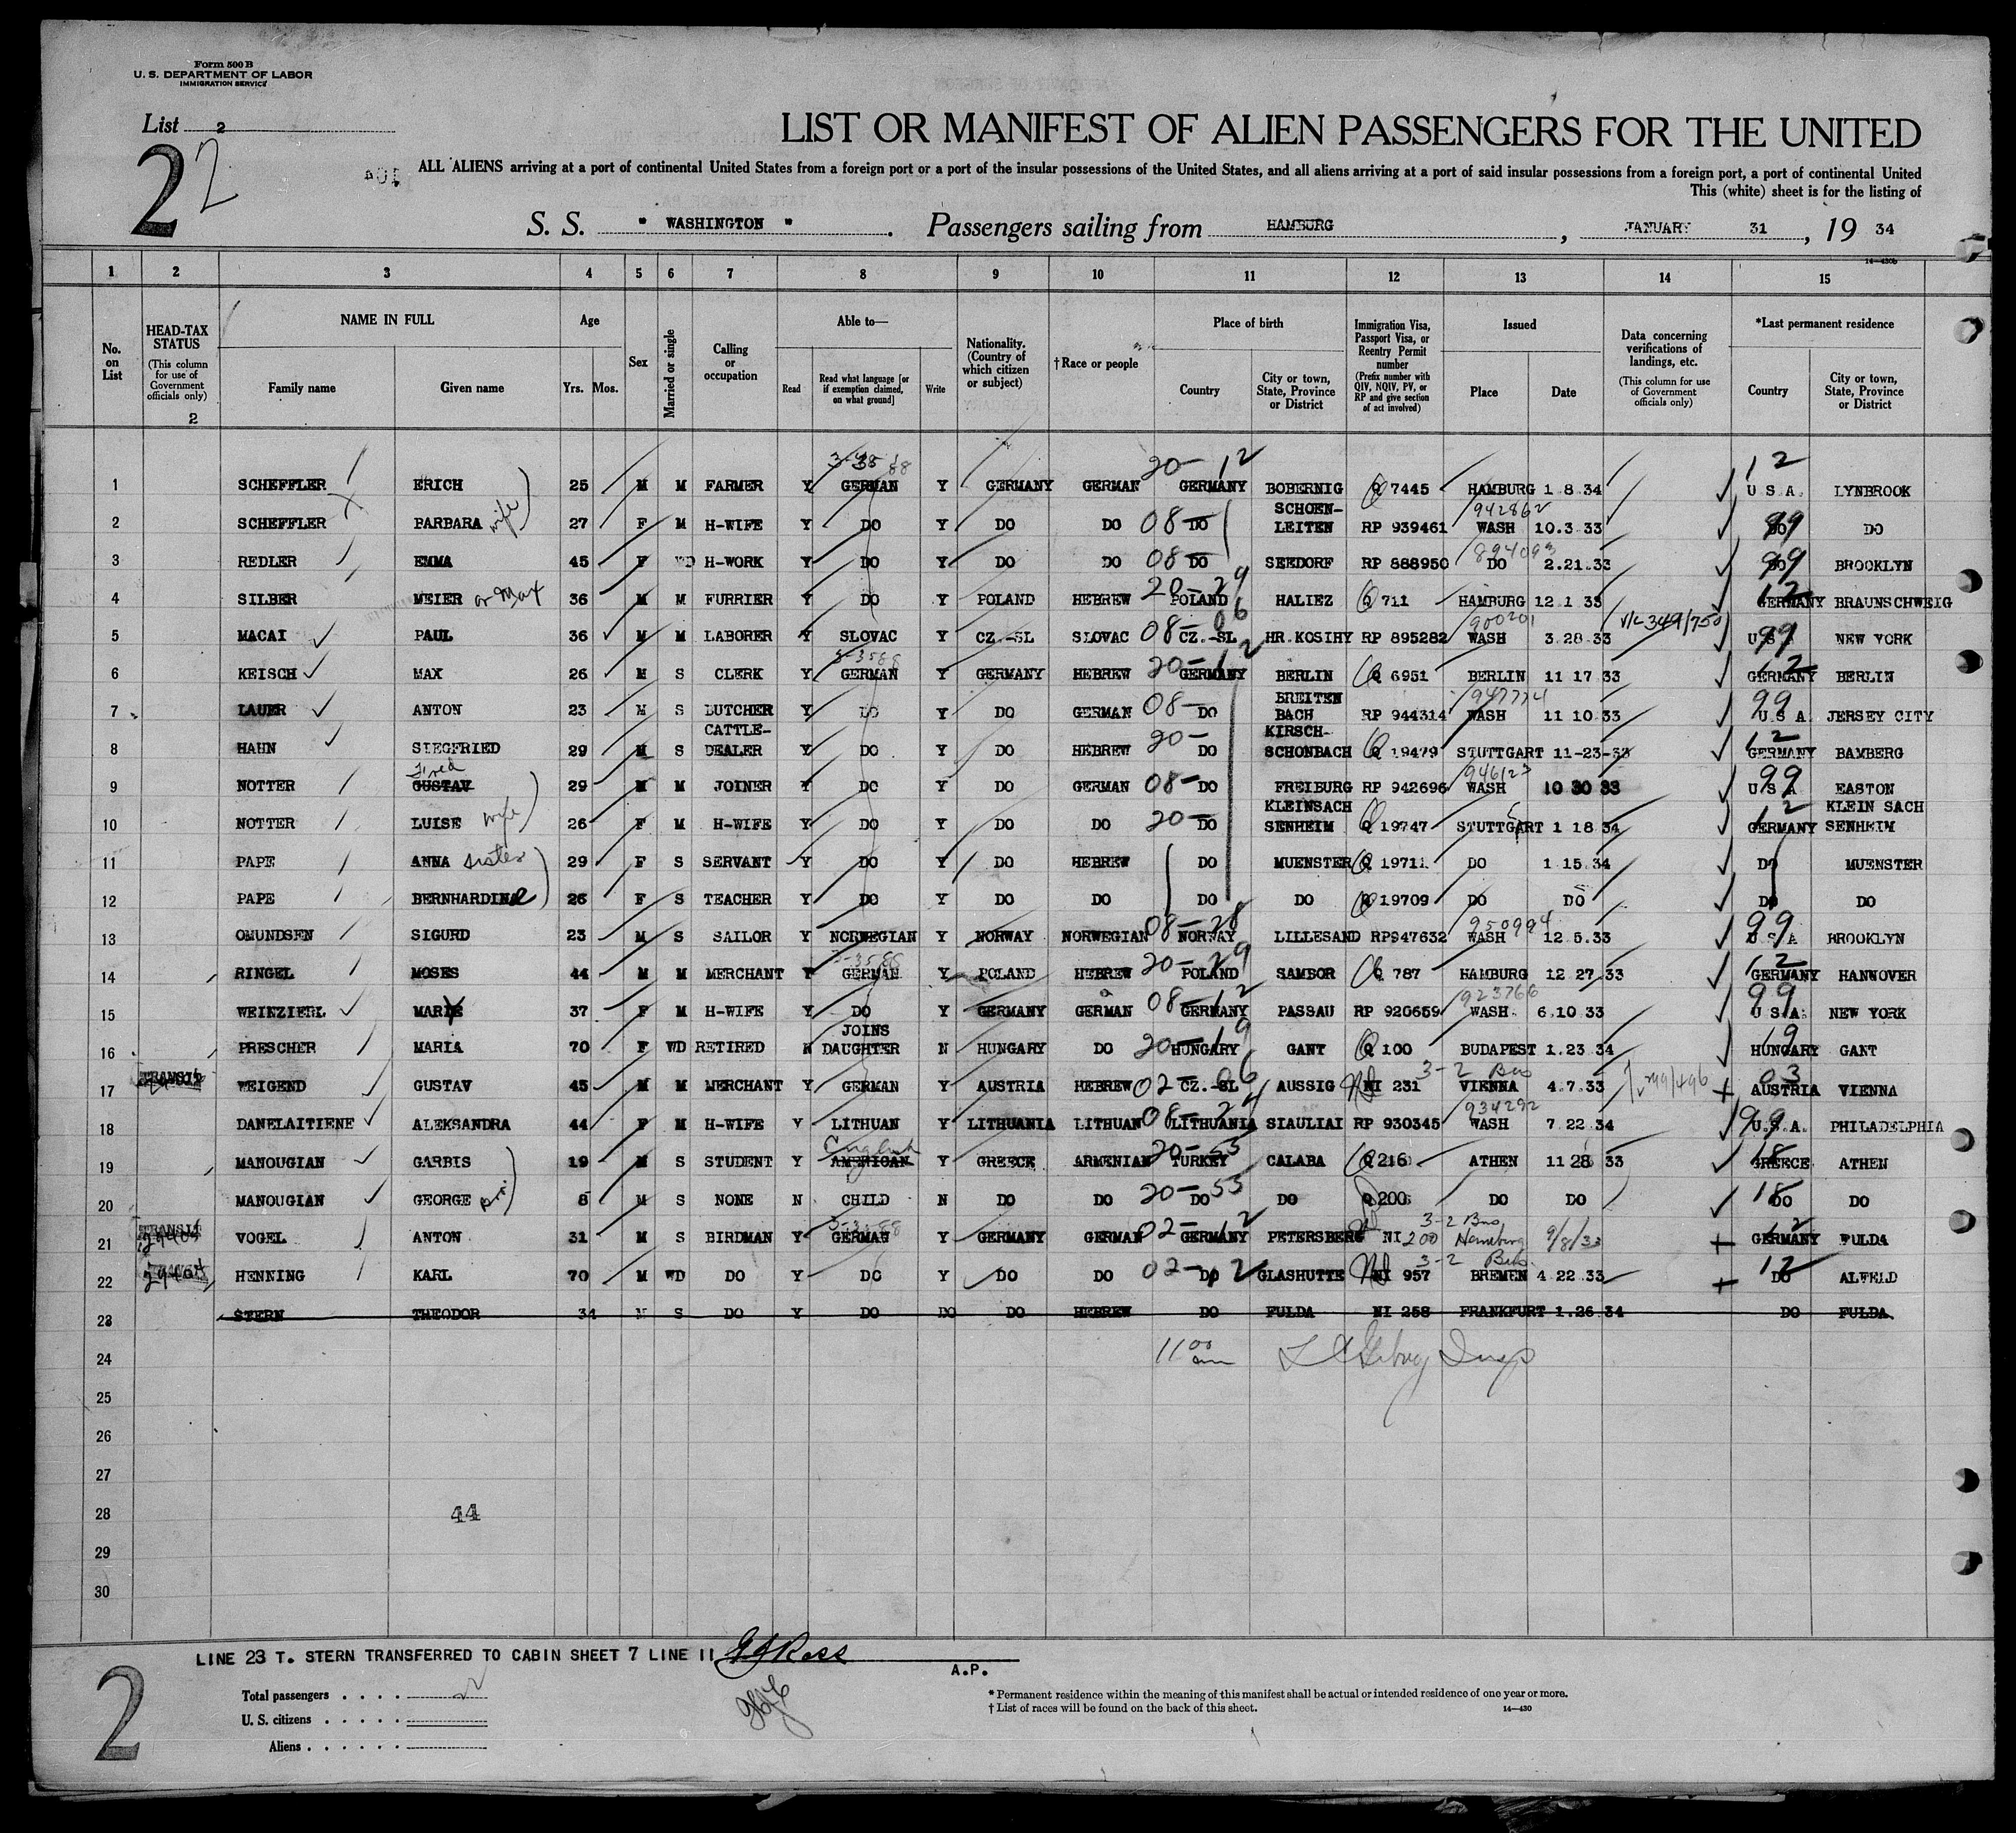 Form 500 B
U. S. DEPARTMENT OF LABOR
IMMIGRATION SERVICE
List 2
2 2
LIST OR MANIFEST OF ALIEN PASSENGERS FOR THE UNITED
ALL ALIENS arriving at a port of continental United States from a foreign port or a port of the insular possessions of the United States, and all aliens arriving at a port of said insular possessions from a foreign port, a port of continental United
This (white) sheet is for the listing of
S. S. " WASHINGTON ". Passengers sailing from HAMBURG, JANUARY 31, 19 34
14—430b
1 2 3 4 5 6 7 8 9 10 11 12 13 14 15
No. on List
HEAD-TAX STATUS (This column for use of Government officials only) 2
NAME IN FULL Family name Given name
Age Yrs. Mos.
Sex
Married or single
Calling or occupation
Able to— Read Read what language [or if exemption claimed, on what ground] Write
Nationality. (Country of which citizen or subject)
† Race or people
Place of birth Country City or town, State, Province or District
Immigration Visa, Passport Visa, or Reentry Permit number (Prefix number with QIV, NQIV, PV, or RP and give section of act involved)
Issued Place Date
Data concerning verifications of landings, etc. (This column for use of Government officials only)
*Last permanent residence Country City or town, State, Province or District
3-35 88 20- 12 12
1 SCHEFFLER ERICH 25 M M FARMER Y GERMAN Y GERMANY GERMAN GERMANY BOBERNIG Q 7445 HAMBURG 1 8.34 U S A. LYNBROOK
2 SCHEFFLER BARBARA wife 27 F M H-WIFE Y DO Y DO DO 08- DO SCHOEN-LEITEN RP 939461 942862 WASH 10.3 33 99 DO DO
3 REDLER EMMA 45 F WD H-WORK Y DO Y DO DO 08- DO SEEDORF RP 888950 894093 DO 2.21.33 99 DO BROOKLYN
4 SILBER MEIER or Max 36 M M FURRIER Y DO Y POLAND HEBREW 20-29 POLAND HALIEZ Q 711 HAMBURG 12 1 33 12 GERMANY BRAUNSCHWEIG
5 MACAI PAUL 36 M M LABORER Y SLOVAC Y CZ.-SL SLOVAC 08-06 CZ.-SL HR.KOSIHY RP 895282 900201 WASH 3.28.33 V/L 349/750 99 U S A NEW YORK
6 KEISCH MAX 26 M S CLERK Y 3-35 88 GERMAN Y GERMANY HEBREW 20-12 GERMANY BERLIN Q 6951 BERLIN 11 17 33 12 GERMANY BERLIN
7 LAUER ANTON 23 M S BUTCHER Y DO Y DO GERMAN 08- DO BREITEN BACH RP 944314 947774 WASH 11 10.33 99 U S A. JERSEY CITY
8 HAHN SIEGFRIED 29 M S CATTLE-DEALER Y DO Y DO HEBREW 20- DO KIRSCH-SCHONBACH Q 19479 STUTTGART 11-23-33 12 GERMANY BAMBERG
9 NOTTER Fred GUSTAV 29 M M JOINER Y DO Y DO GERMAN 08- DO FREIBURG RP 942696 946123 WASH 10 30 33 99 U S A EASTON
10 NOTTER LUISE wife 26 F M H-WIFE Y DO Y DO DO 20- DO KLEINSACH SENHEIM Q 19747 STUTTGART 1 18 34 12 GERMANY KLEIN SACH SENHEIM
11 PAPE ANNA sister 29 F S SERVANT Y DO Y DO HEBREW DO MUENSTER Q 19711 DO 1 15.34 DO MUENSTER
12 PAPE BERNHARDINe 26 F S TEACHER Y DO Y DO DO DO DO Q 19709 DO DO DO DO
13 OMUNDSEN SIGURD 23 M S SAILOR Y NORWEGIAN Y NORWAY NORWEGIAN 08-28 NORWAY LILLESAND RP947632 950994 WASH 12.5.33 99 U S A BROOKLYN
14 RINGEL MOSES 44 M M MERCHANT Y 3-35 88 GERMAN Y POLAND HEBREW 20-29 POLAND SAMBOR Q 787 HAMBURG 12 27.33 12 GERMANY HANNOVER
15 WEINZIERL MARY 37 F M H-WIFE Y DO Y GERMANY GERMAN 08-12 GERMANY PASSAU RP 920659 923766 WASH. 6.10 33 99 U S A. NEW YORK
16 PRESCHER MARIA 70 F WD RETIRED N JOINS DAUGHTER N HUNGARY DO 20-19 HUNGARY GANT Q 100 BUDAPEST 1.23 34 19 HUNGARY GANT
17 TRANSIT WEIGEND GUSTAV 45 M M MERCHANT Y GERMAN Y AUSTRIA HEBREW 02-06 CZ.-SL AUSSIG NI 231 3-2 Bus VIENNA 4.7.33 03 AUSTRIA VIENNA
18 DANELAITIENE ALEKSANDRA 44 F M H-WIFE Y LITHUAN Y LITHUANIA LITHUAN 08-24 LITHUANIA SIAULIAI RP 930345 934292 WASH 7 22 34 99 U.S.A. PHILADELPHIA
19 MANOUGIAN GARBIS 19 M S STUDENT Y English AMERICAN Y GREECE ARMENIAN 20-53 TURKEY CALABA Q 216 ATHEN 11 28 33 18 GREECE ATHEN
20 MANOUGIAN GEORGE bro. 8 M S NONE N CHILD N DO DO 20-53 DO DO Q 200 DO DO 18 DO DO
21 TRANSIT VOGEL ANTON 31 M S BIRDMAN Y GERMAN Y GERMANY GERMAN 02-12 GERMANY PETERSBERG NI 200 3-2 Bus Hamburg 9/8/33 12 GERMANY FULDA
22 TRANSIT HENNING KARL 70 M WD DO Y DO Y DO DO 02-12 DO GLASHUTTE NI 957 3-2 Bus. BREMEN 4 22.33 12 DO ALFELD
23 STERN THEODOR 34 M S DO Y DO DO DO HEBREW DO FULDA NI 258 FRANKFURT 1.26.34 DO FULDA
24 11 00 am
25
26
27
28 44
29
30
LINE 23 T. STERN TRANSFERRED TO CABIN SHEET 7 LINE 11 Ross
A.P.
2
Total passengers
U. S. citizens
Aliens
* Permanent residence within the meaning of this manifest shall be actual or intended residence of one year or more.
† List of races will be found on the back of this sheet.
14—430